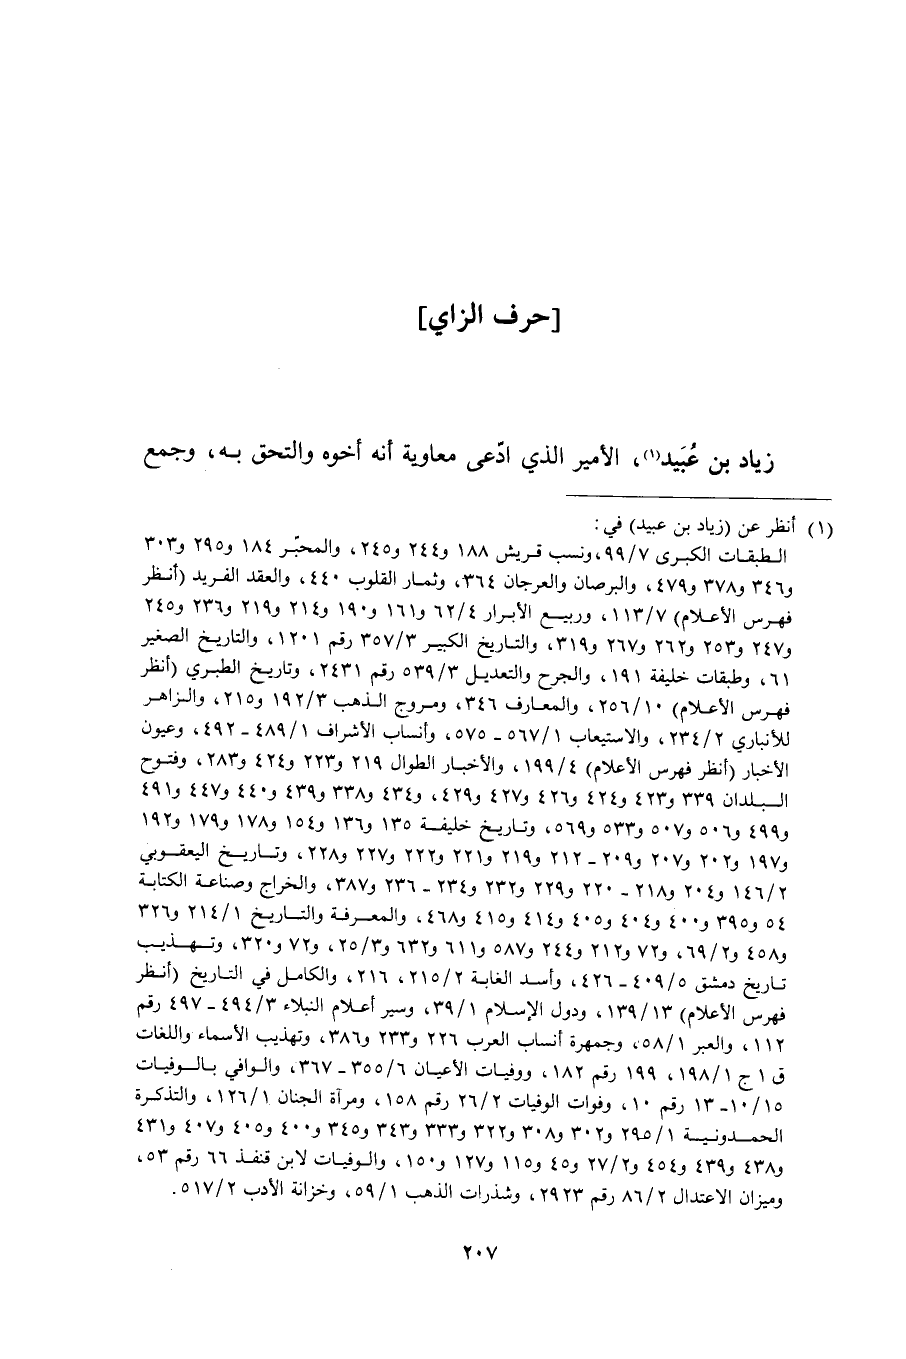 [حرف الزاي]
زياد بن عُبَيد(١)، الأمير الذي ادّعى معاوية أنه أخوه والتحق به، وجمع
(١) أنظر عن (زياد بن عبيد) في:
الطبقات الكبرى ٩٩/٧، ونسب قريش ١٨٨ و٢٤٤ و٢٤٥، والمحبّر ١٨٤ و٢٩٥ و٣٠٣
و٣٤٦ و٣٧٨ و٤٧٩، والبرصان والعرجان ٣٦٤، وثمار القلوب ٤٤٠، والعقد الفريد (أنظر
فهرس الأعلام) ١١٣/٧، وربيع الأبرار ٦٢/٤ و١٦١ و١٩٠ و٢١٤ و٢١٩ و٢٣٦ و٢٤٥
و٢٤٧ و٢٥٣ و٢٦٢ و٢٦٧ و٣١٩، والتاريخ الكبير ٣٥٧/٣ رقم ١٢٠١، والتاريخ الصغير
٦١، وطبقات خليفة ١٩١، والجرح والتعديل ٥٣٩/٣ رقم ٢٤٣١، وتاريخ الطبري (أنظر
فهرس الأعلام) ٢٥٦/١٠، والمعارف ٣٤٦، ومروج الذهب ١٩٢/٣ و٢١٥، والزاهر
للأنباري ٢٣٤/٢، والاستيعاب ٥٦٧/١ ـ ٥٧٥، وأنساب الأشراف ٤٨٩/١ ـ ٤٩٢، وعيون
الأخبار (أنظر فهرس الأعلام) ١٩٩/٤، والأخبار الطوال ٢١٩ و٢٢٣ و٤٢٤ و٢٨٣، وفتوح
البلدان ٣٣٩ و٤٢٣ و٤٢٤ و٤٢٦ و٤٢٧ و٤٢٩، و٤٣٤ و٣٣٨ و٤٣٩ و٤٤٠ و٤٤٧ و٤٩١
و٤٩٩ و٥٠٦ و٥٠٧ و٥٣٣ و٥٦٩، وتاريخ خليفة ١٣٥ و١٣٦ و١٥٤ و١٧٨ و١٧٩ و١٩٢
و١٩٧ و٢٠٢ و٢٠٧ و٢٠٩ ـ ٢١٢ و٢١٩ و٢٢١ و٢٢٢ و٢٢٧ و٢٢٨، وتاريخ اليعقوبي
١٤٦/٢ و٢٠٤ و٢١٨ ـ ٢٢٠ و٢٢٩ و٢٣٢ و٢٣٤ ـ ٢٣٦ و٣٨٧، والخراج وصناعة الكتابة
٥٤ و٣٩٥ و٤٠٠ و٤٠٤ و٤٠٥ و٤١٤ و٤١٥ و٤٦٨، والمعرفة والتاريخ ٢١٤/١ و٣٢٦
و٤٥٨ و٦٩/٢، و٧٢ و٢١٢ و٢٤٤ و٥٨٧ و٦١١ و٦٣٢ و٢٥/٣، و٧٢ و٣٢٠، وتهذيب
تاريخ دمشق ٤٠٩/٥ ـ ٤٢٦، وأسد الغابة ٢١٥/٢، ٢١٦، والكامل في التاريخ (أنظر
فهرس الأعلام) ١٣٩/١٣، ودول الإسلام ٣٩/١، وسير أعلام النبلاء ٤٩٤/٣ ـ ٤٩٧ رقم
١١٢، والعبر ٥٨/١، وجمهرة أنساب العرب ٢٢٦ و٢٣٣ و٣٨٦، وتهذيب الأسماء واللغات
ق ١ ج ١٩٨/١، ١٩٩ رقم ١٨٢، ووفيات الأعيان ٣٥٥/٦ ـ ٣٦٧، والوافي بالوفيات
١٠/١٥ ـ ١٣ رقم ١٠، وفوات الوفيات ٢٦/٢ رقم ١٥٨، ومرآة الجنان ١٢٦/١، والتذكرة
الحمدونية ٢٩٥/١ و٣٠٢ و٣٠٨ و٣٢٢ و٣٣٣ و٣٤٣ و٣٤٥ و٤٠٠ و٤٠٥ و٤٠٧ و٤٣١
و٤٣٨ و٤٣٩ و٤٥٤ و٢٧/٢ و٤٥ و١١٥ و١٢٧ و١٥٠، والوفيات لابن قنفذ ٦٦ رقم ٥٣،
وميزان الاعتدال ٨٦/٢ رقم ٢٩٢٣، وشذرات الذهب ٥٩/١، وخزانة الأدب ٥١٧/٢.
٢٠٧